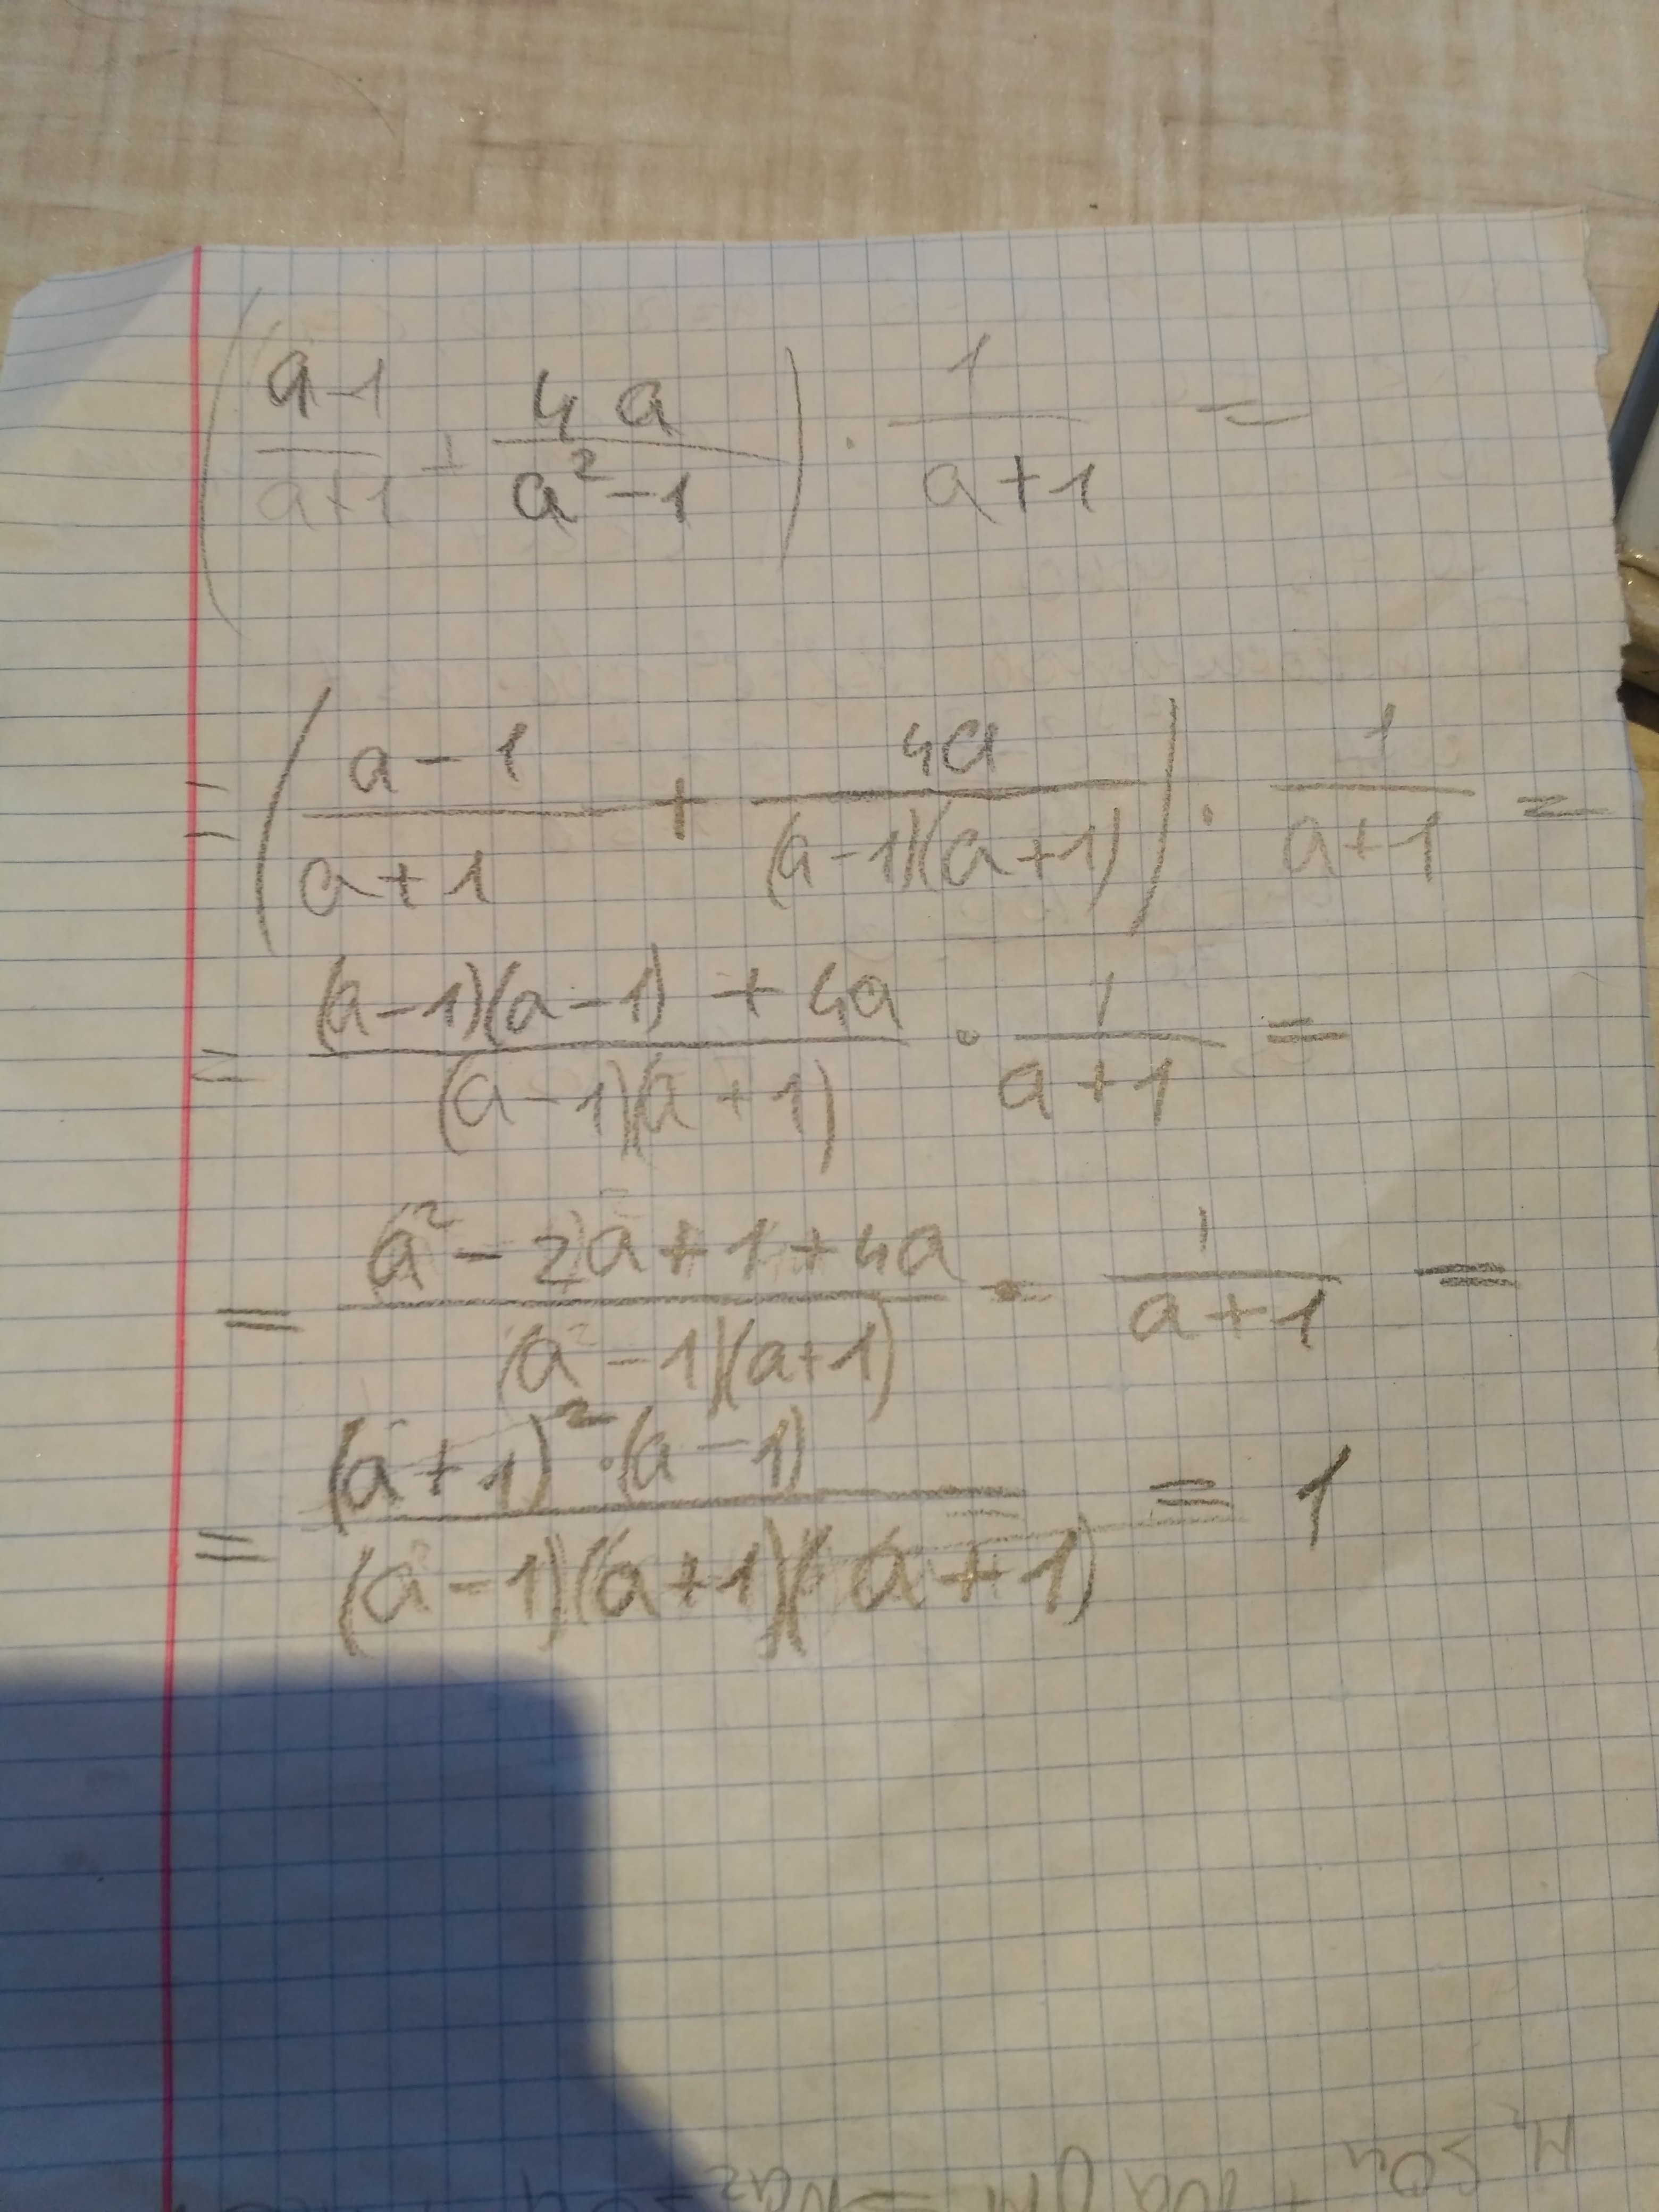 ( (a-1)/(a+1) + (4a)/(a²-1) ) · 1/(a+1) =
= ( (a-1)/(a+1) + (4a)/((a-1)(a+1)) ) · 1/(a+1) =
= ((a-1)(a-1) + 4a)/((a-1)(a+1)) · 1/(a+1) =
= (a² - 2a + 1 + 4a)/((a² - 1)(a+1)) · 1/(a+1) =
= ((a+1)² · (a-1))/((a-1)(a+1)(a+1)) = 1